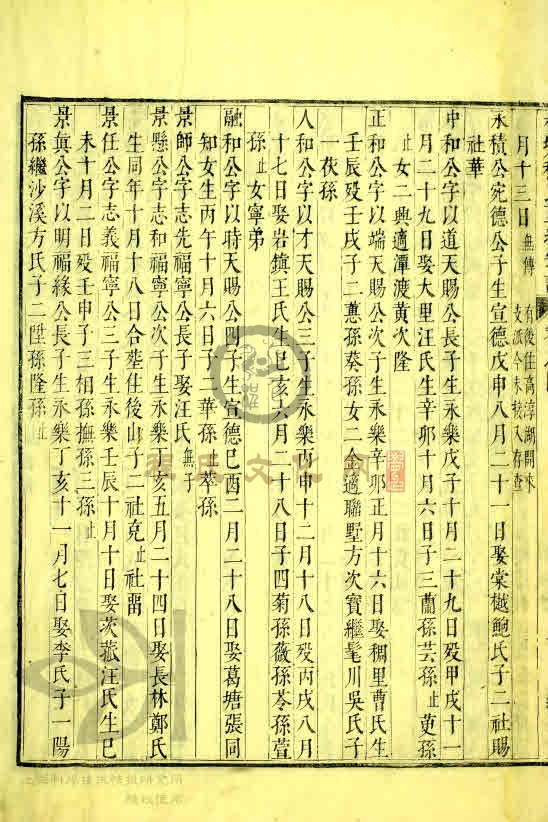 月十三日無傳 有後住高淳湖開來
支派今未接入存查
永積公宛德公子生宣德戊申八月二十一日娶棠樾鮑氏子二社賜
社華
中和公字以道天賜公長子生永樂戊子十月二十九日歿甲戌十一
月二十九日娶大里汪氏生辛卯十月六日子三蘭孫芸孫止莄孫
止女二興適潭渡黃次隆
正和公字以端天賜公次子生永樂辛卯正月十六日娶稠里曹氏生
壬辰歿壬戌子二蕙孫葵孫女二余適聯墅方次寶繼髦川吳氏子
一茯孫
人和公字以才天賜公三子生永樂丙申十二月十八日歿丙戌八月
十七日娶岩鎮王氏生己亥六月二十八日子四菊孫薇孫苓孫萱
孫止女寧弟
融和公字以時天賜公四子生宣德己酉二月二十八日娶葛塘張同
知女生丙午十月六日子二華孫止萃孫
景師公字志先福寧公長子娶汪氏無子
景懸公字志和福寧公次子生永樂丁亥五月二十四日娶長林鄭氏
生同年十月十八日合塟住後山子二社堯止社畱
景任公字志義福寧公三子生永樂壬辰十月十日娶茨菰汪氏生巳
未十月二日歿壬申子三相孫撫孫三孫止
景眞公字以明福緣公長子生永樂丁亥十一月七日娶李氏子一陽
孫繼沙溪方氏子二陞孫隆孫止